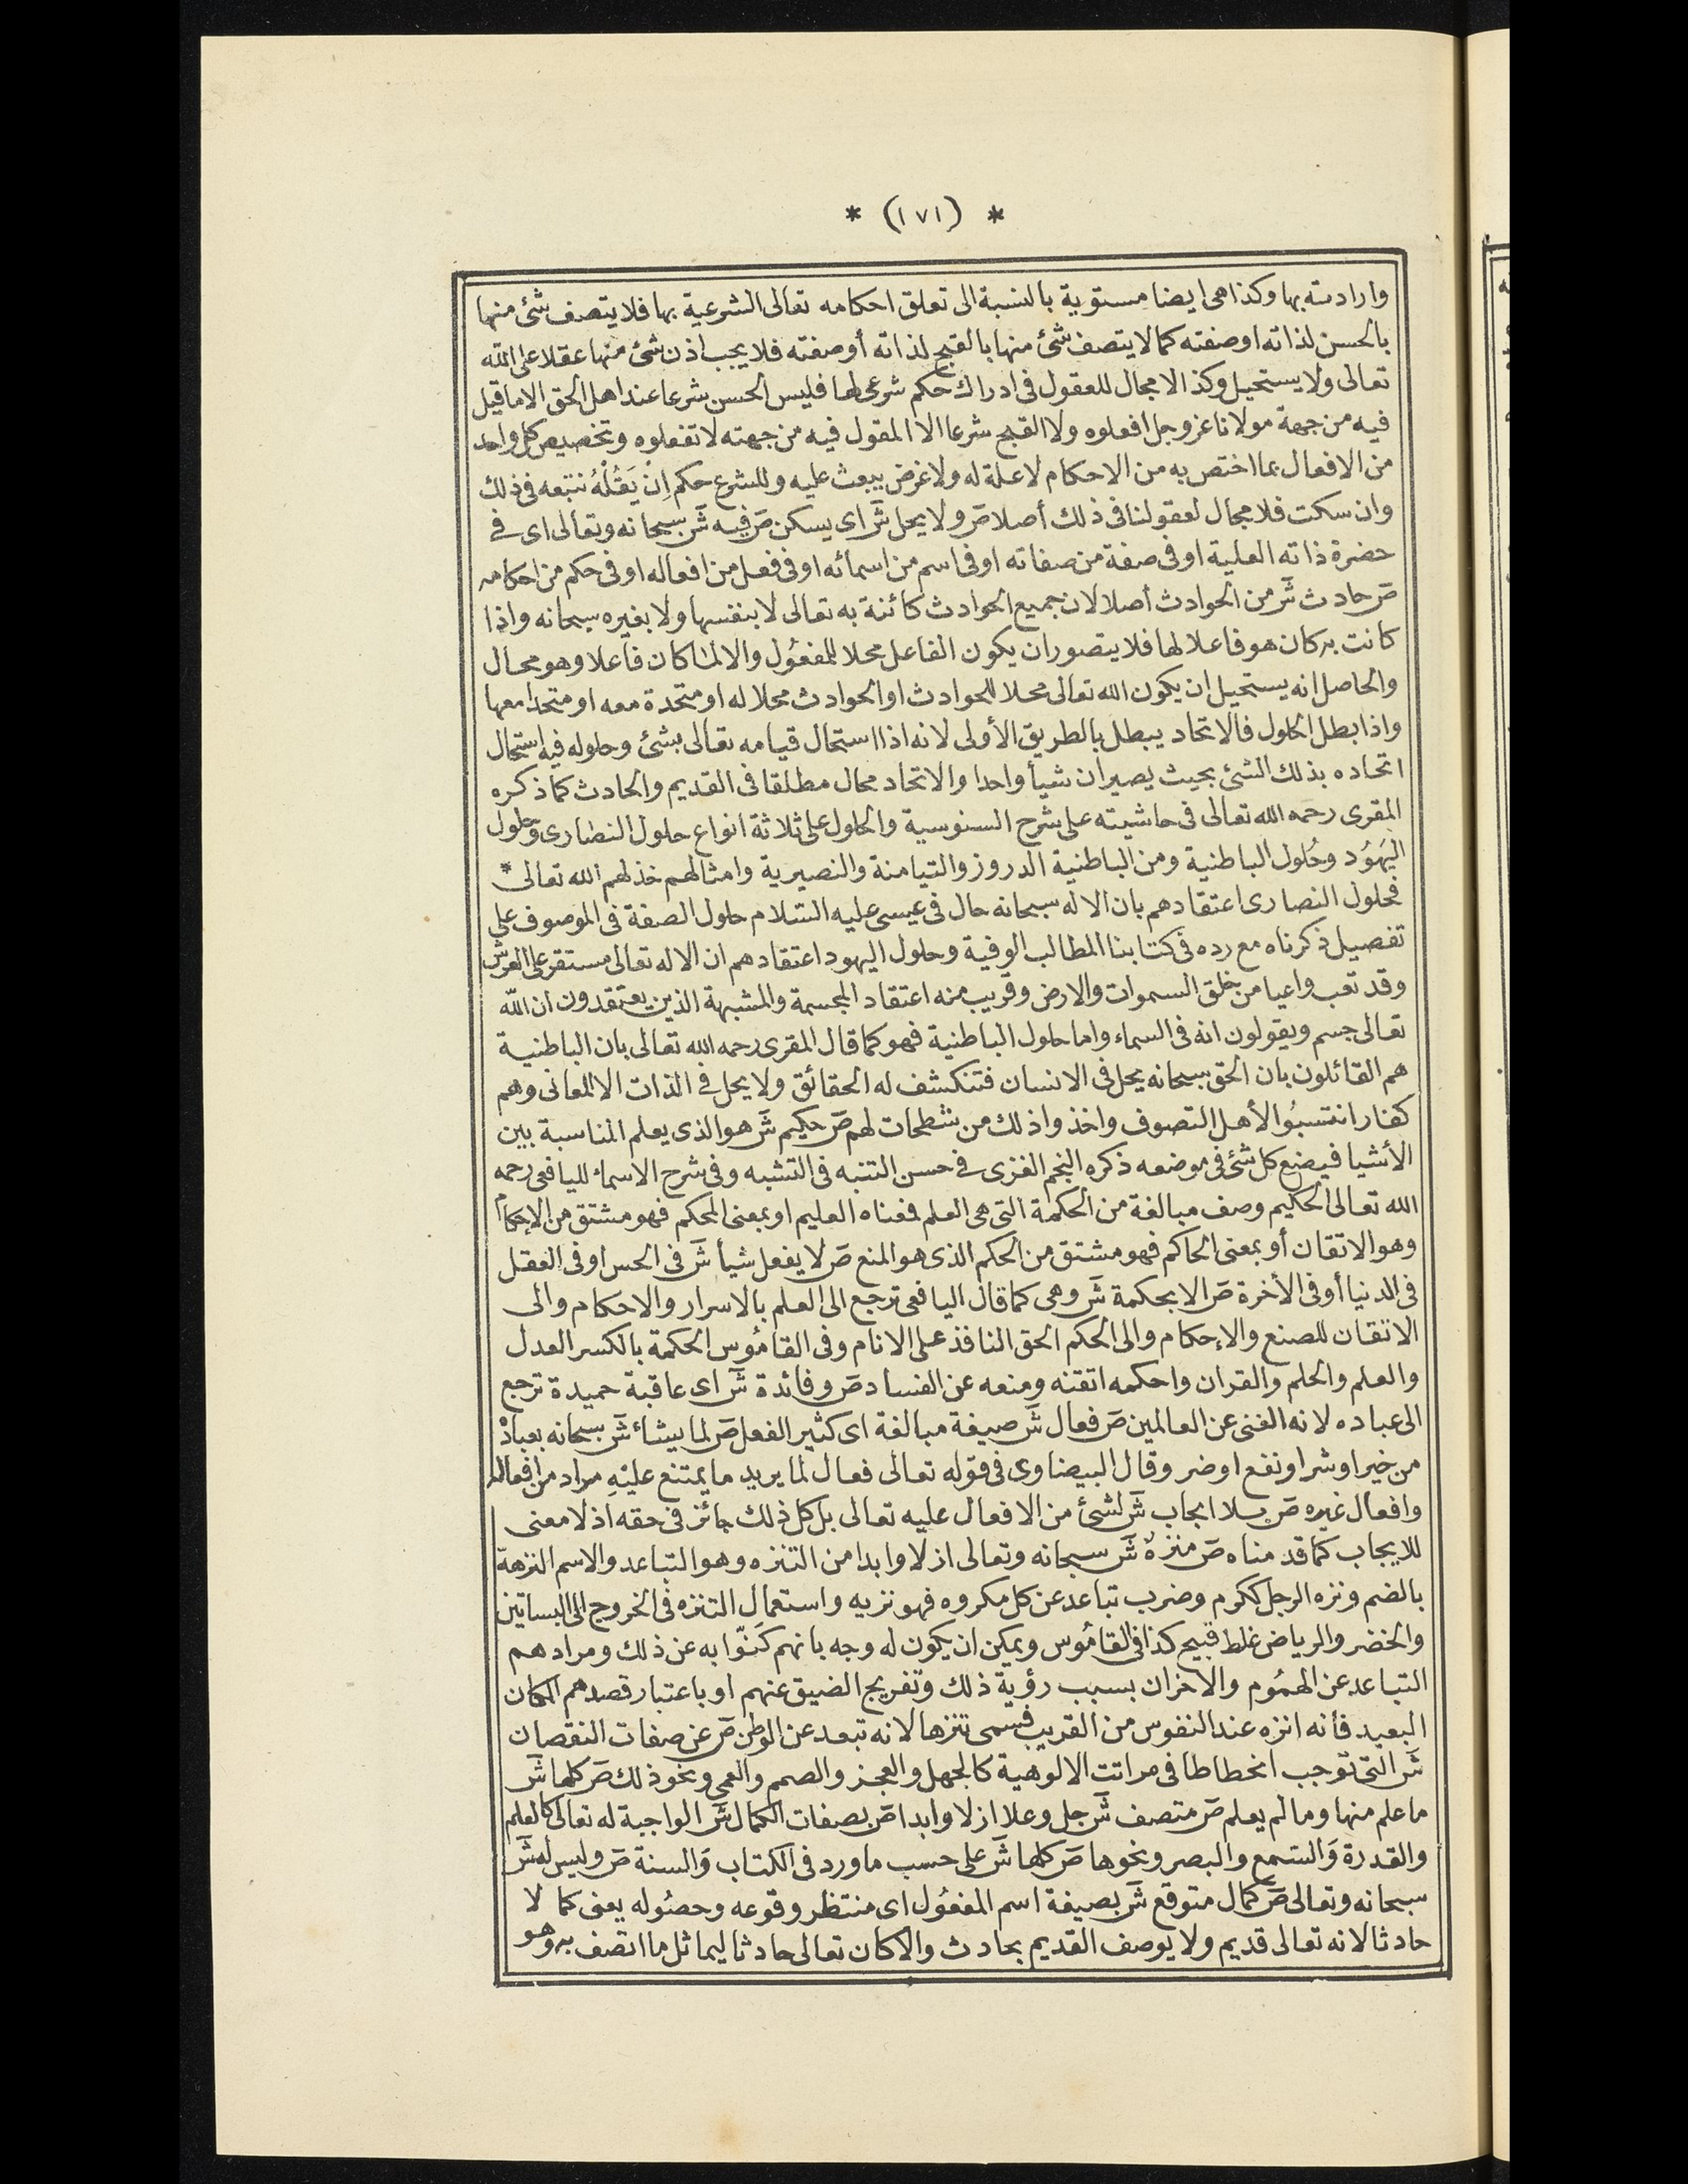 * (١٧١) *
وارادته بها وكذا هى ايضا مستوية بالنسبة الى تعلق احكامه تعالى الشرعية بها فلا يتصف شئ منها
بالحسن لذاته او صفته كما لا يتصف شئ منها بالقبح لذاته أو صفته فلا يجب اذن شئ منها عقلا على الله
تعالى ولا يستحيل وكذا لا مجال للعقول فى ادراك حكم شرعى لها فليس الحسن شرعا عند اهل الحق الا ما قيل
فيه من جهة مولانا عز وجل افعلوه ولا القبح شرعا الا المقول فيه من جهته لا تفعلوه وتخصيص كل واحد
من الافعال بما اختص به من الاحكام لا علة له ولا غرض يبعث عليه وللشرع حكم اِنْ يَقُلْهُ نتبعه فى ذلك
وان سكت فلا مجال لعقولنا فى ذلك أصلا صَ ولا يحل شَ اى يسكن صَ فيه شَ سبحانه وتعالى اى فى
حضرة ذاته العلية او فى صفة من صفاته او فى اسم من اسمائه او فى فعل من افعاله او فى حكم من احكامه
صَ حادث شَ من الحوادث أصلا لان جميع الحوادث كائنة به تعالى لا بنفسها ولا بغيره سبحانه واذا
كانت به كان هو فاعلا لها فلا يتصور ان يكون الفاعل محلا للمفعُول والا لما كان فاعلا وهو محال
والحاصل انه يستحيل ان يكون الله تعالى محلا للحوادث او الحوادث محلا له او متحدة معه او متحدا معها
واذا بطل الحلول فالاتحاد يبطل بالطريق الأولى لانه اذا استحال قيامه تعالى بشئ وحلوله فيه استحال
اتحاده بذلك الشئ بحيث يصيران شيأ واحدا والاتحاد محال مطلقا فى القديم والحادث كما ذكره
المقرى رحمه الله تعالى فى حاشيته على شرح السنوسية والحلول على ثلاثة انواع حلول النصارى وحلول
اليَهوُد وحُلول الباطنية ومن الباطنية الدروز والتيامنة والنصيرية وامثالهم خذلهم الله تعالى *
فحلول النصارى اعتقادهم بان الاله سبحانه حال فى عيسى عليه السّلام حلول الصفة فى الموصوف على
تفصيل ذكرناه مع رده فى كتابنا المطالب الوفية وحلول اليهود اعتقادهم ان الاله تعالى مستقر على العرش
وقد تعب واعيا من خلق السموات والارض وقريب منه اعتقاد المجسمة والمشبهة الذين يعتقدون ان الله
تعالى جسم ويقولون انه فى السماء واما حلول الباطنية فهو كما قال المقرى رحمه الله تعالى بان الباطنية
هم القائلون بان الحق سبحانه يحل فى الانسان فتنكشف له الحقائق ولا يحل فى الذات الا المعانى وهم
كفار انتسبُوا لأهل التصوف واخذوا ذلك من شطحات لهم صَ حكيم شَ هو الذى يعلم المناسبة بين
الأشيا فيضع كل شئ فى موضعه ذكره النجم الغزى فى حسن التنبه فى التشبه وفى شرح الاسماء لليافعى رحمه
الله تعالى الحكيم وصف مبالغة من الحكمة التى هى العلم فمعناه العليم او بمعنى المحكم فهو مشتق من الإحكام
وهو الاتقان أو بمعنى الحاكم فهو مشتق من الحكم الذى هو المنع صَ لا يفعل شيأ شَ فى الحس او فى العقل
فى الدنيا أو فى الأخرة صَ الا بحكمة شَ وهى كما قال اليافعى ترجع الى العلم بالاسرار والاحكام والى
الاتقان للصنع والإحكام والى الحكم الحق النافذ على الانام وفى القاموُس الحكمة بالكسر العدل
والعلم والحلم والقران واحكمه اتقنه ومنعه عن الفساد صَ وفائدة شَ اى عاقبة حميدة ترجع
الى عباده لانه الغنى عن العالمين صَ فعال شَ صيغة مبالغة اى كثير الفعل صَ لما يشاء شَ سبحانه بعباده
من خير او شر او نفع او ضر وقال البيضاوى فى قوله تعالى فعال لما يريد ما يمتنع عليْهِ مراد من افعاله
وافعال غيره صَ بلا ايجاب شَ لشئ من الافعال عليه تعالى بل كل ذلك جائز فى حقه اذ لا معنى
للايجاب كما قد مناه صَ منزهٌ شَ سبحانه وتعالى ازلا وابدا من التنزه وهو التباعد والاسم النزهة
بالضم ونزه الرجل ككرم وضرب تباعد عن كل مكروه فهو نزيه واستعمال التنزه فى الخروج الى البساتين
والخضر والرياض غلط قبيح كذا فى القاموُس ويمكن ان يكون له وجه بانهم كَنَّوا به عن ذلك ومرادهم
التباعد عن الهمُوم والاحزان بسبب رؤية ذلك وتفريج الضيق عنهم او باعتبار قصدهم المكان
البعيد فأنه انزه عند النفوس من القريب فسمى تنزها لانه تبعد عن الوطن صَ عن صفات النقصان
شَ التى توجب انحطاطا فى مراتت الالوهية كالجهل والعجز والصمم والعمى ونحو ذلك صَ كلها شَ
ما علم منها وما لم يعلم صَ متصف شَ جل وعلا ازلا وابدا صَ بصفات الكمال شَ الواجبة له تعالى كالعلم
والقدرة وَالسّمع والبصر ونحوها صَ كلها شَ على حسب ما ورد فى الكتاب وَالسنة صَ وليس له شَ
سبحانه وتعالى صَ كمال متوقع شَ بصيغة اسم المفعُول اى منتظر وقوعه وحصُوله يعنى كما لا
حادثا لانه تعالى قديم ولا يوصف القديم بحادث والا كان تعالى حادثا ليماثل ما اتصف به وهو